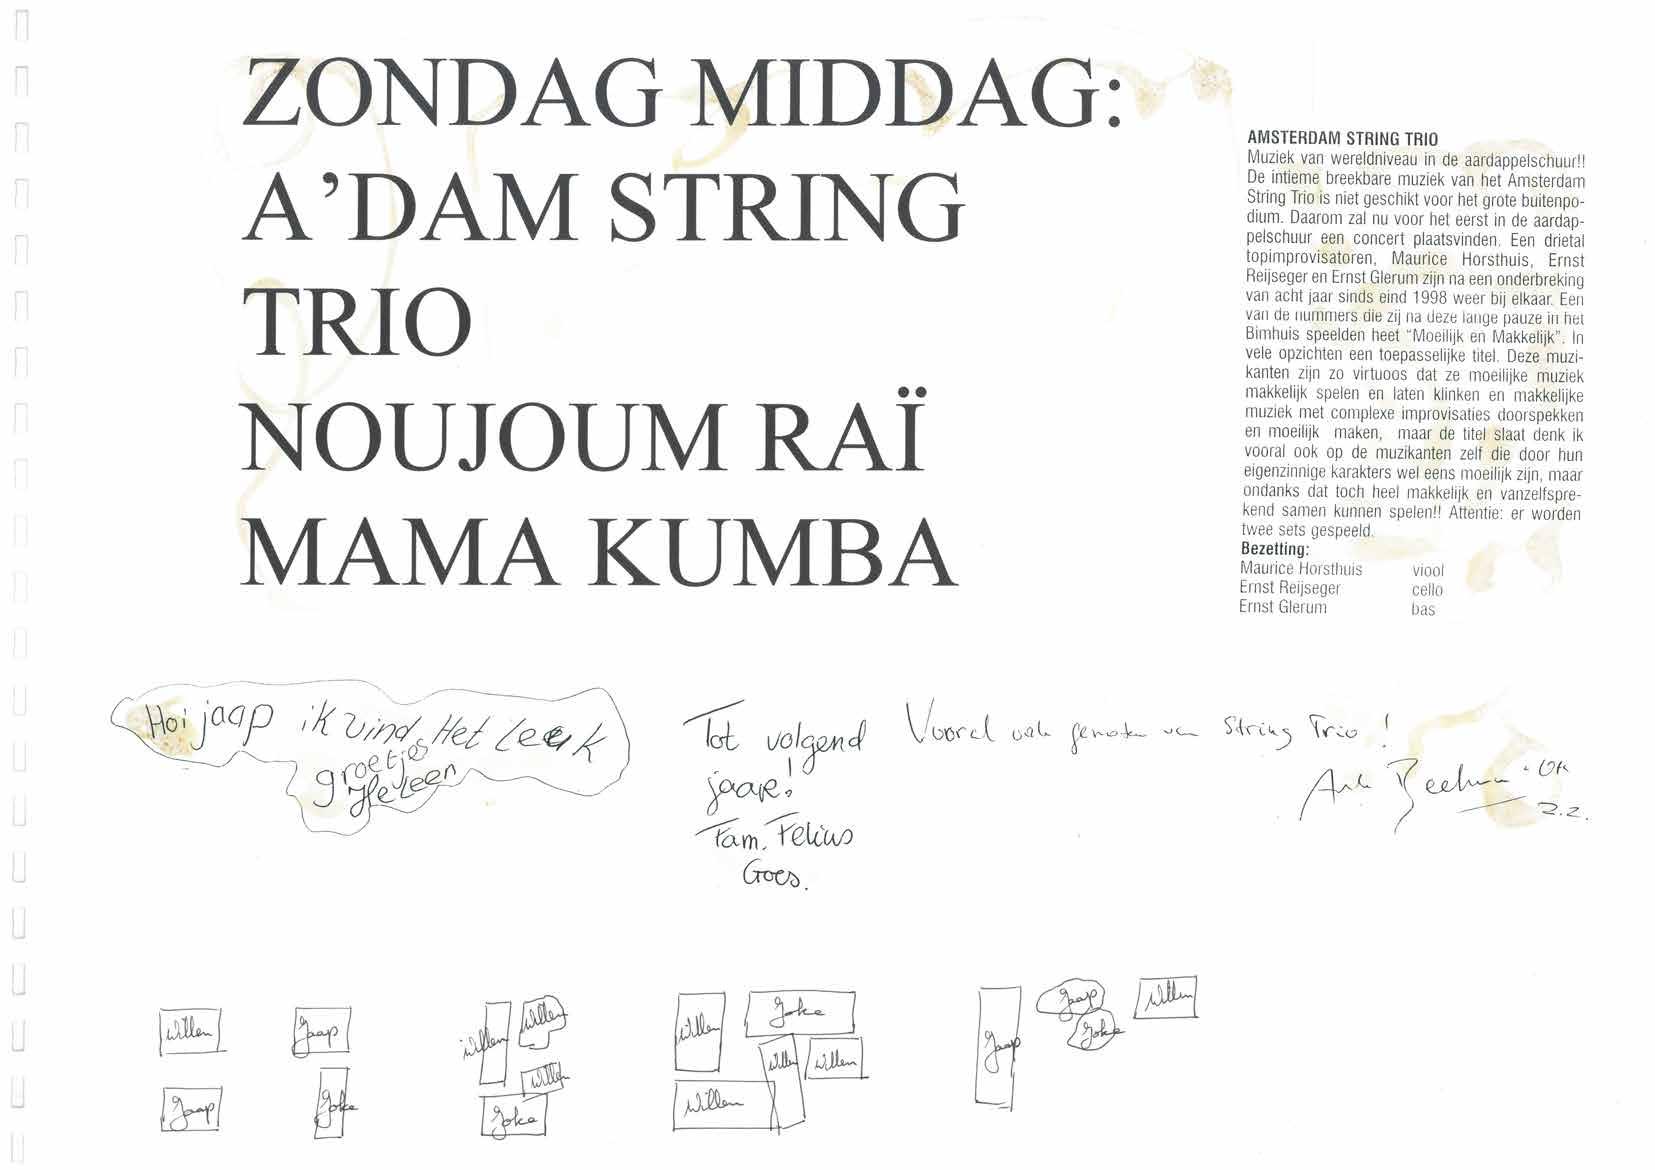 ZONDAG MIDDAG:
A’DAM STRING
TRIO
NOUJOUM RAÏ
MAMA KUMBA
AMSTERDAM STRING TRIO
Muziek van wereldniveau in de aardappelschuur!!
De intieme breekbare muziek van het Amsterdam
String Trio is niet geschikt voor het grote buitenpo-
dium. Daarom zal nu voor het eerst in de aardap-
pelschuur een concert plaatsvinden. Een drietal
topimprovisatoren, Maurice Horsthuis, Ernst
Reijseger en Ernst Glerum zijn na een onderbreking
van acht jaar sinds eind 1998 weer bij elkaar. Een
van de nummers die zij na deze lange pauze in het
Bimhuis speelden heet “Moeilijk en Makkelijk”. In
vele opzichten een toepasselijke titel. Deze muzi-
kanten zijn zo virtuoos dat ze moeilijke muziek
makkelijk spelen en laten klinken en makkelijke
muziek met complexe improvisaties doorspekken
en moeilijk maken, maar de titel slaat denk ik
vooral ook op de muzikanten zelf die door hun
eigenzinnige karakters wel eens moeilijk zijn, maar
ondanks dat toch heel makkelijk en vanzelfspre-
kend samen kunnen spelen!! Attentie: er worden
twee sets gespeeld.
Bezetting:
Maurice Horsthuis viool
Ernst Reijseger cello
Ernst Glerum bas
Hoi jaap ik vind Het Leuk
groetjes
Heleen
Tot volgend
jaar!
Fam. Felius
Goes.
Vooral ook genoten van String Trio!
Willem
Jaap
Jaap
Joke
Willem
Willem
Willem
Joke
Willem
Joke
Willem
Willem
Willem
Jaap
Jaap
Joke
Willem